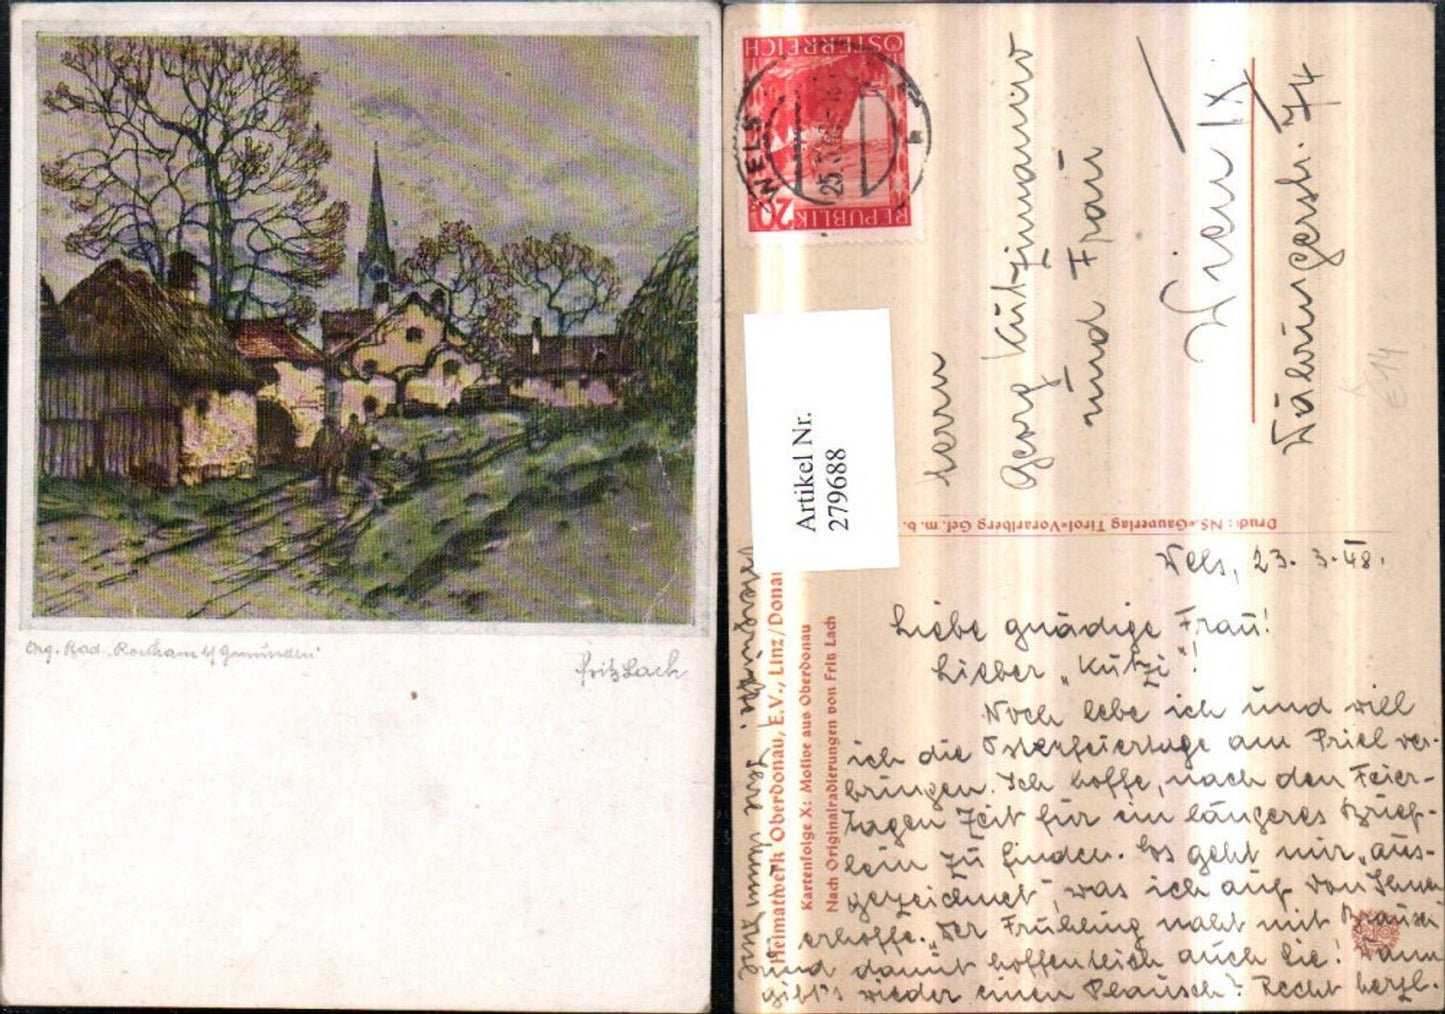 Org. Rad. "Rorham b/ Gmunden"
Fritz Lach
REPUBLIK
20
ÖSTERREICH
WELS
25.
Artikel Nr.
279688
Herrn
Georg Kutzimauro
und Frau
Wien IX
Währingerstr. 74
K
E14
Druck: NS.-Gauverlag Tirol-Vorarlberg Ges. m. b.
Heimatwerk Oberdonau, E.V., Linz/Donau
Kartenfolge X: Motive aus Oberdonau
Nach Originalradierungen von Fritz Lach
Wels, 23. 3. 48.
Liebe gnädige Frau!
Lieber "Kutzi"!
Noch lebe ich und will
ich die Osterfeiertage am Priel ver-
bringen. Ich hoffe, nach den Feier-
tagen Zeit für ein längeres Brief-
lein zu finden. Es geht mir "aus-
gezeichnet", was ich auch von Ihnen
erhoffe. "Der Frühling naht mit Brausen"
und damit hoffentlich auch Sie! Dann
gibt's wieder einen Plausch! Recht herzl.